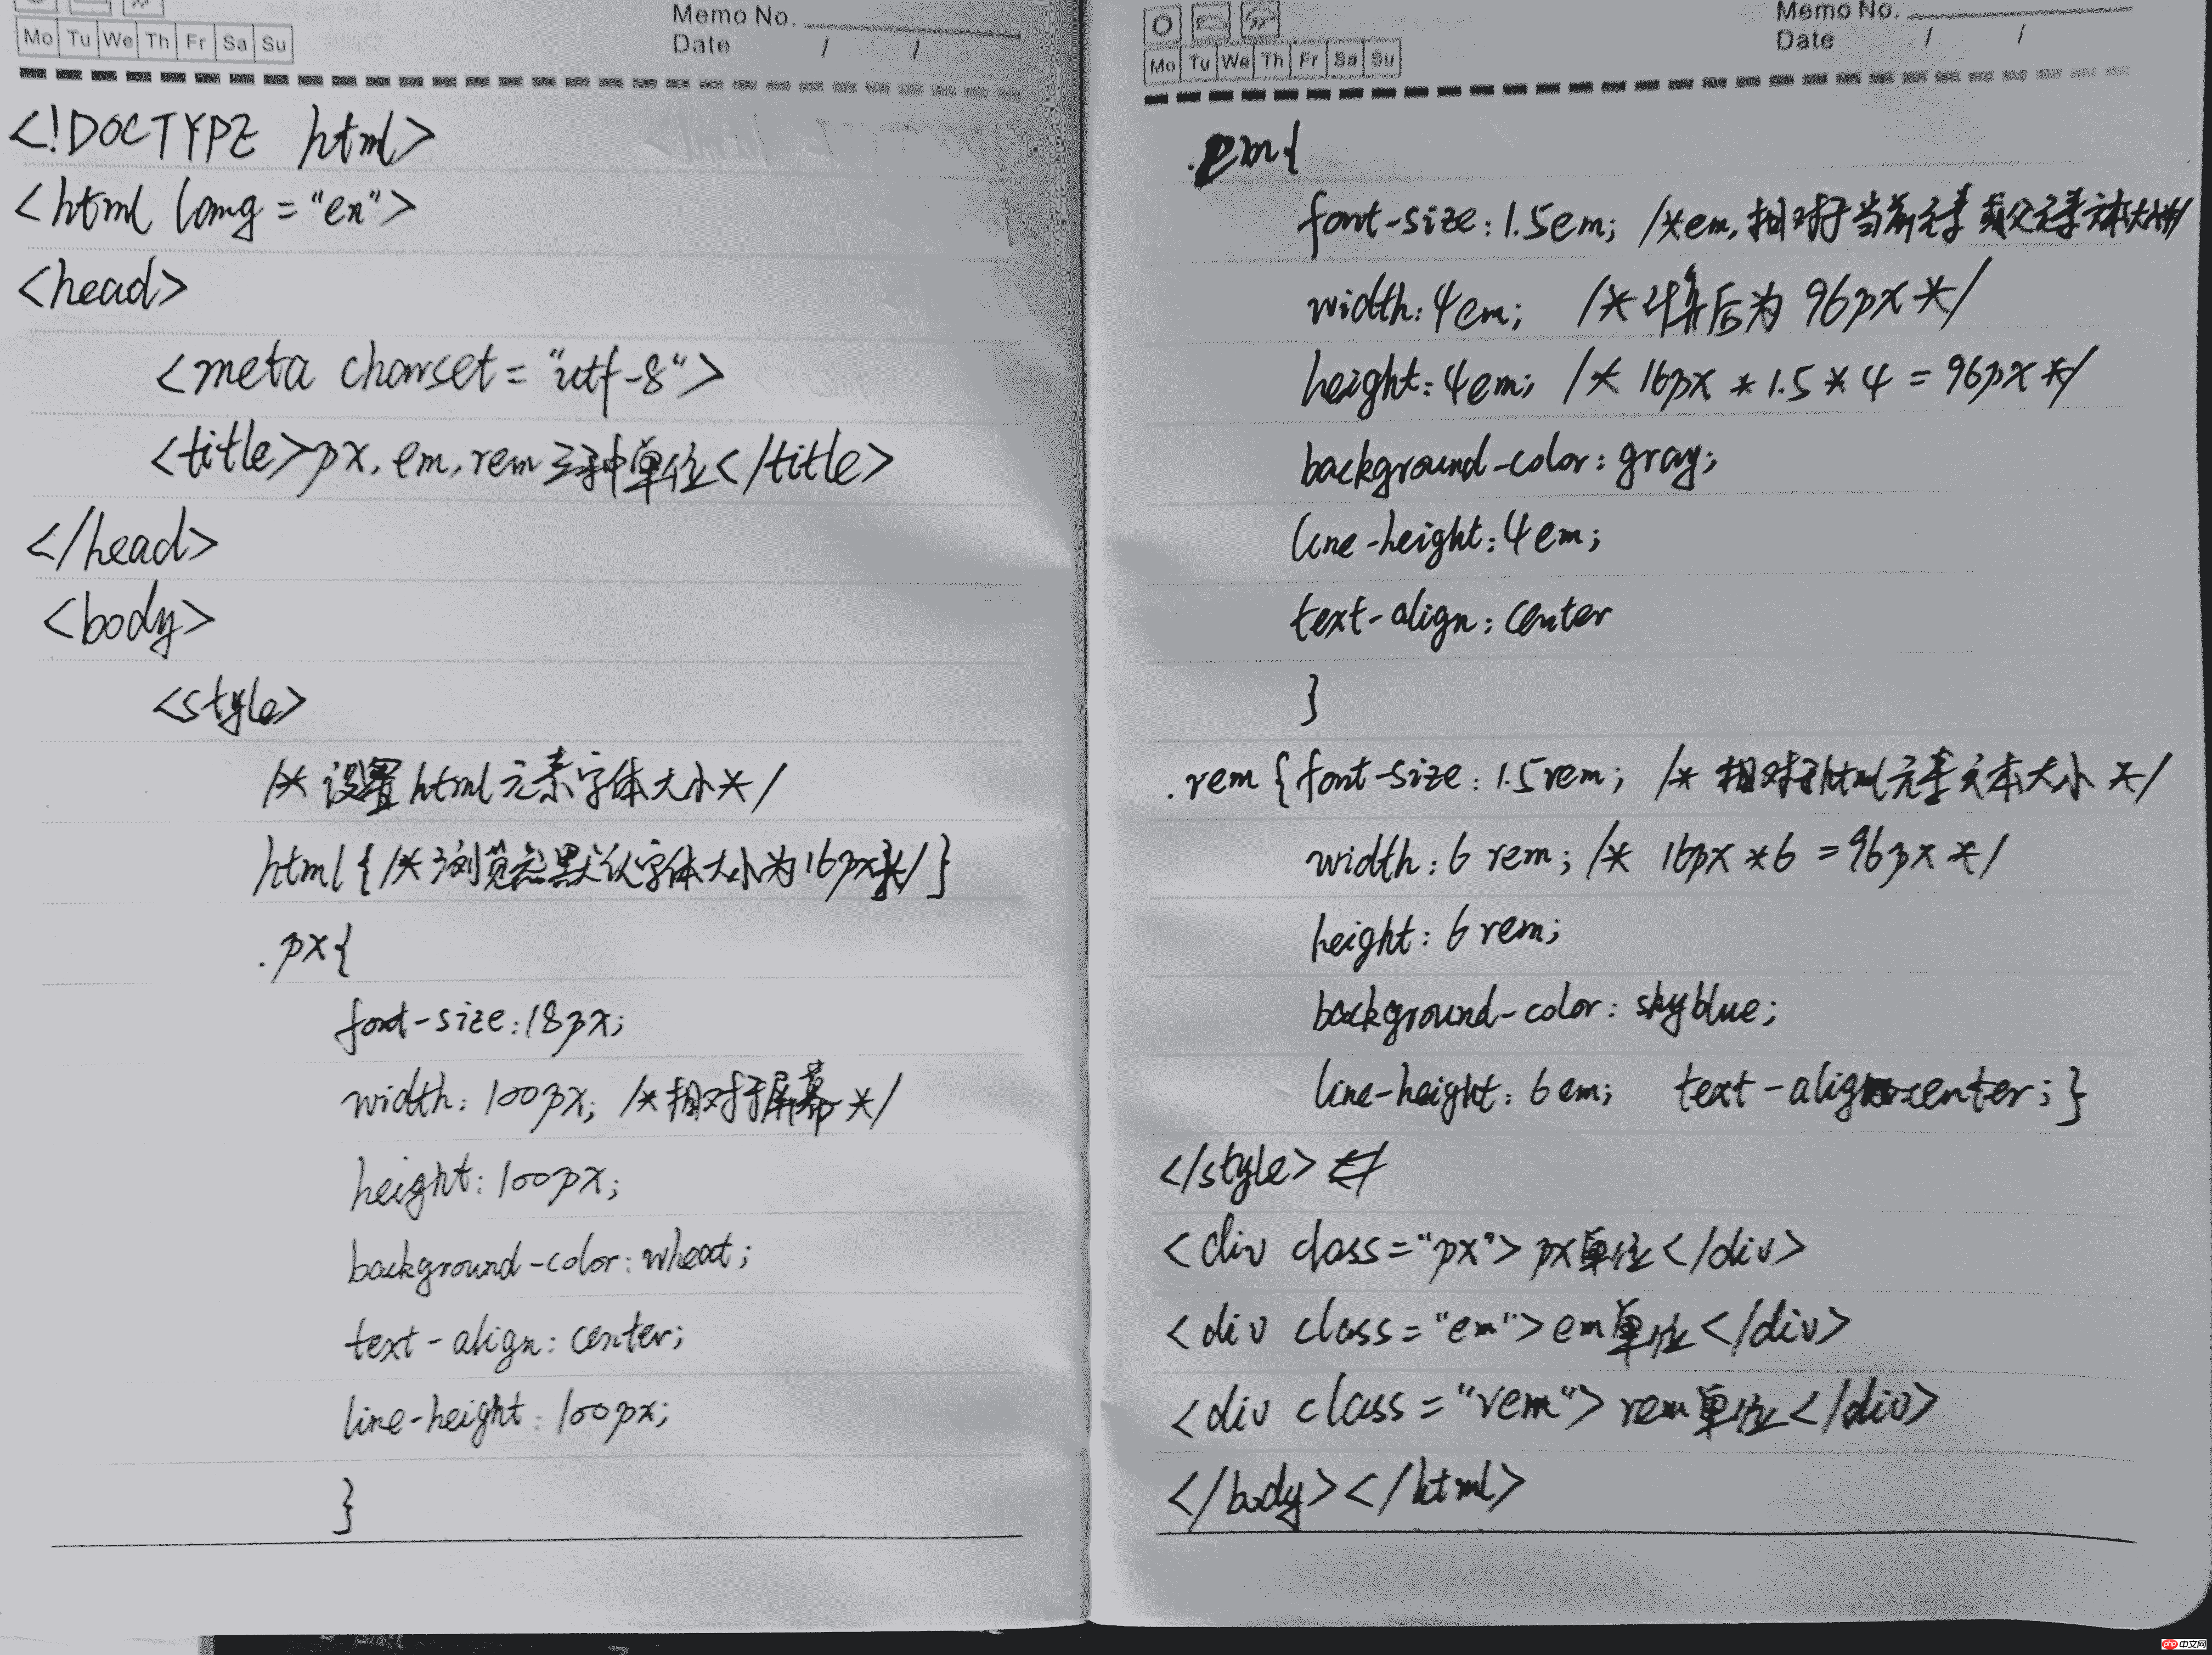 Mo Tu We Th Fr Sa Su
Memo No.
Date / /
<!DOCTYPE html>
<html lang="en">
<head>
<meta charset="utf-8">
<title>px,em,rem三种单位</title>
</head>
<body>
<style>
/*设置html元素字体大小*/
html{/*浏览器默认字体大小为16px*/}
.px{
font-size:18px;
width:100px; /*相对于屏幕*/
height:100px;
background-color:wheat;
text-align:center;
line-height:100px;
}
Mo Tu We Th Fr Sa Su
Memo No.
Date / /
.em{
font-size:1.5em; /*em,相对于当前元素或父元素文本大小*/
width:4em; /*计算后为96px*/
height:4em; /* 16px*1.5*4=96px*/
background-color:gray;
line-height:4em;
text-align:center
}
.rem{font-size:1.5rem; /*相对于html元素文本大小*/
width:6rem; /* 16px*6=96px*/
height:6rem;
background-color:skyblue;
line-height:6em; text-align:center;}
</style>
<div class="px">px单位</div>
<div class="em">em单位</div>
<div class="rem">rem单位</div>
</body></html>
php中文网